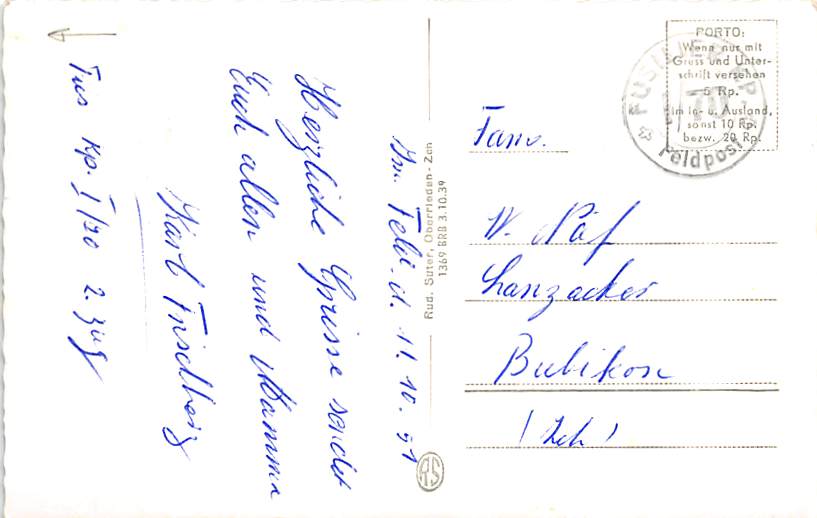 Im Feld. d. 11. 10. 51
Herzliche Grüsse sendet
Euch allen und Mamma
Karl
Füs Kp. I/70 2. Zug
Rud. Suter, Oberrieden-Zch
1369 BRB 3.10.39
RS
PORTO:
Wenn nur mit
Gruss und Unter-
schrift versehen
5 Rp.
im In- u. Ausland,
sonst 10 Rp.
bezw. 20 Rp.
Feldpost
Fam.
W. Näf
Lanzacker
Bubikon
(Zch)